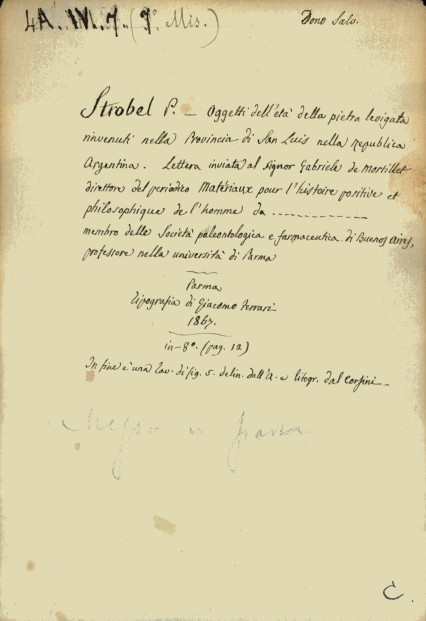 4A. IV. 7. (7° Mis.)
Dono Salv.
Strobel P. — Oggetti dell'età della pietra levigata
rinvenuti nella Provincia di San Luis nella Republica
Argentina. Lettera inviata al Signor Gabriele de Mortillet
direttore del periodico Matériaux pour l'histoire positive et
philosophique de l'homme da ------------
membro delle Società paleontologica e farmaceutica di Buenos Aires,
professore nella università di Parma
Parma
tipografia di Giacomo Ferrari
1867.
in-8°. (pag. 12)
In fine è una tav. di fig. 5. delin. dall'A. e litogr. dal Corsini —
C.